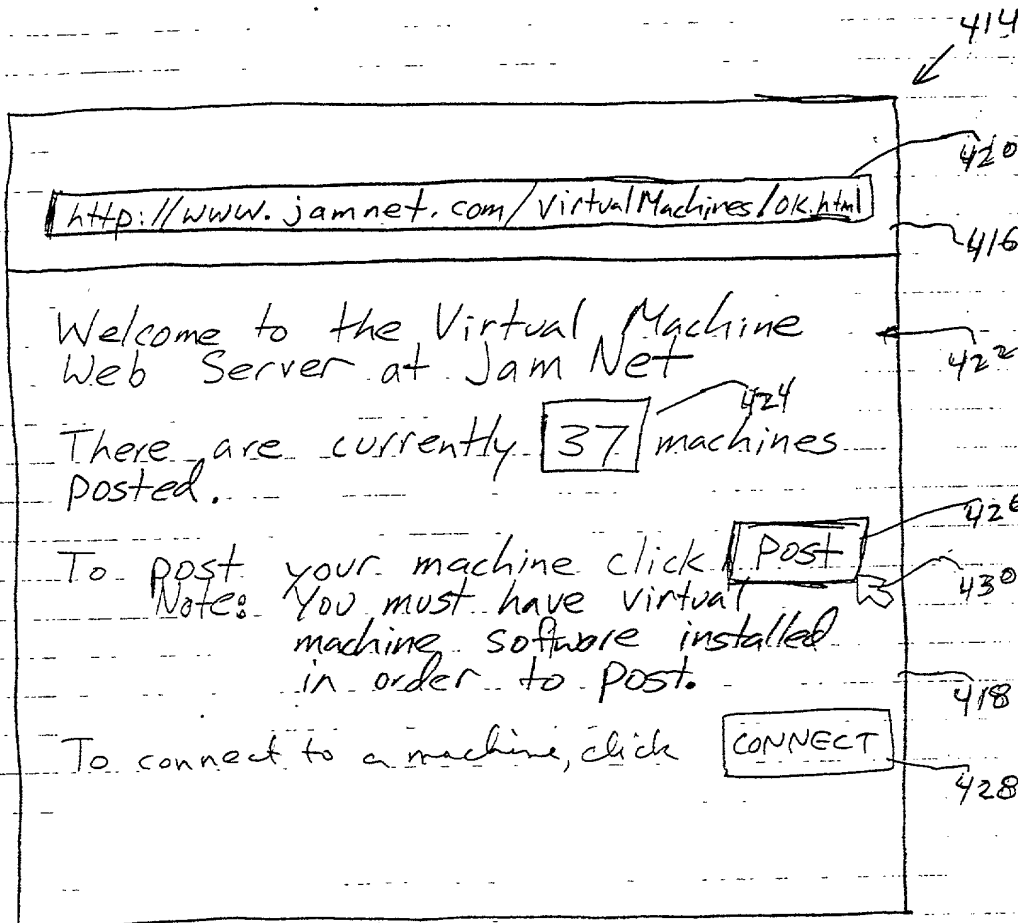 414
420
http://www.jamnet.com/VirtualMachines/ok.html
416
Welcome to the Virtual Machine
Web Server at Jam Net
422
424
There are currently 37 machines
posted.
426
To post your machine click Post
430
Note: You must have virtual
machine software installed
in order to post.
418
To connect to a machine, click CONNECT
428